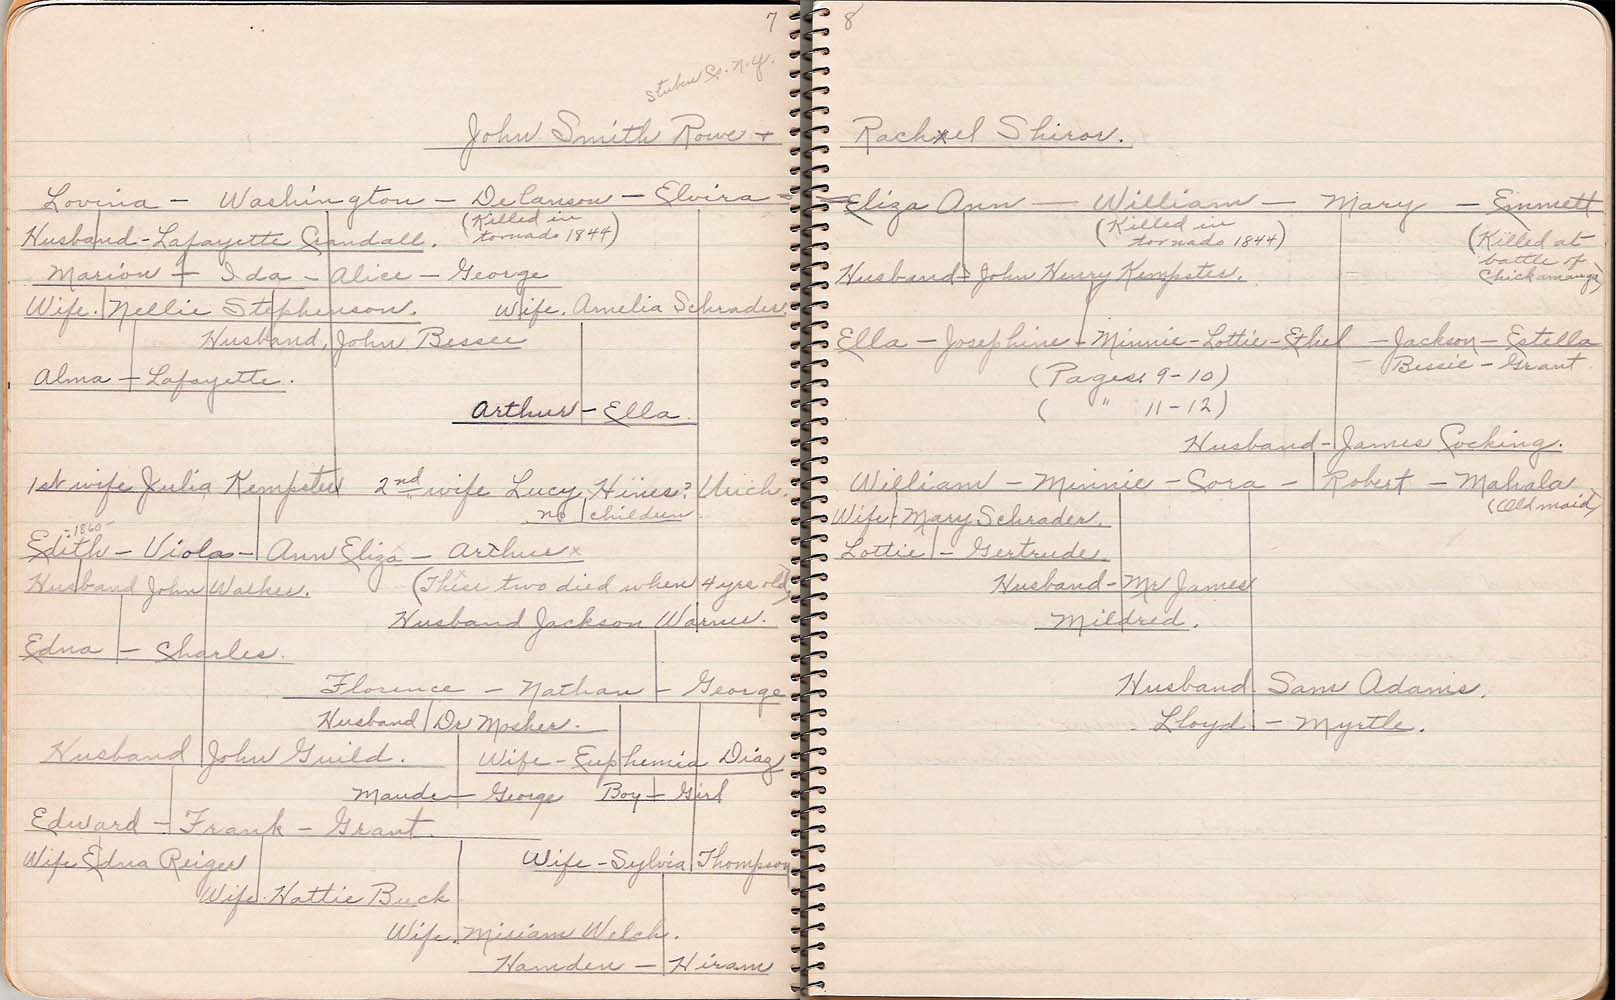 7
Co. N.Y.
John Smith Rowe +
Lovina - Washington - DeLanson - Elvira -
(Killed in
tornado 1844)
Husband - Lafayette Crandall.
Marion - Ida - Alice - George
Wife. Nellie Stephenson. Wife. Amelia Schrader.
Husband, John Bessee
Alma - Lafayette.
Arthur - Ella.
1st wife Julia Kempster 2nd wife Lucy Hines? Urich.
no children
-1860-
Edith - Viola - Ann Eliza x - Arthur x
Husband John Walker. (These two died when 4 yrs old)
Husband Jackson Warner.
Edna - Charles.
Florence - Nathan - George
Husband Dr Mosher.
Husband John Guild. Wife - Euphemia Diaz
Maude - George Boy - Girl
Edward - Frank - Grant.
Wife Edna Reiger Wife - Sylvia Thompson
Wife. Hattie Buck
Wife. Miriam Welch.
Hamden - Hiram
8
Rachxel Shirov.
- Eliza Ann - William - Mary - Emmett
(Killed in
tornado 1844)
(Killed at
battle of
Chickamauga)
Husband - John Henry Kempster.
Ella - Josephine - Minnie - Lottie - Ethel - Jackson - Estella
Bessie - Grant
(Pages. 9-10)
( " 11-12)
Husband - James Cocking.
William - Minnie - Cora - Robert - Mahala
(Old maid)
Wife - Mary Schrader.
Lottie - Gertrude.
Husband - Mr James
Mildred.
Husband Sam Adams.
Lloyd - Myrtle.